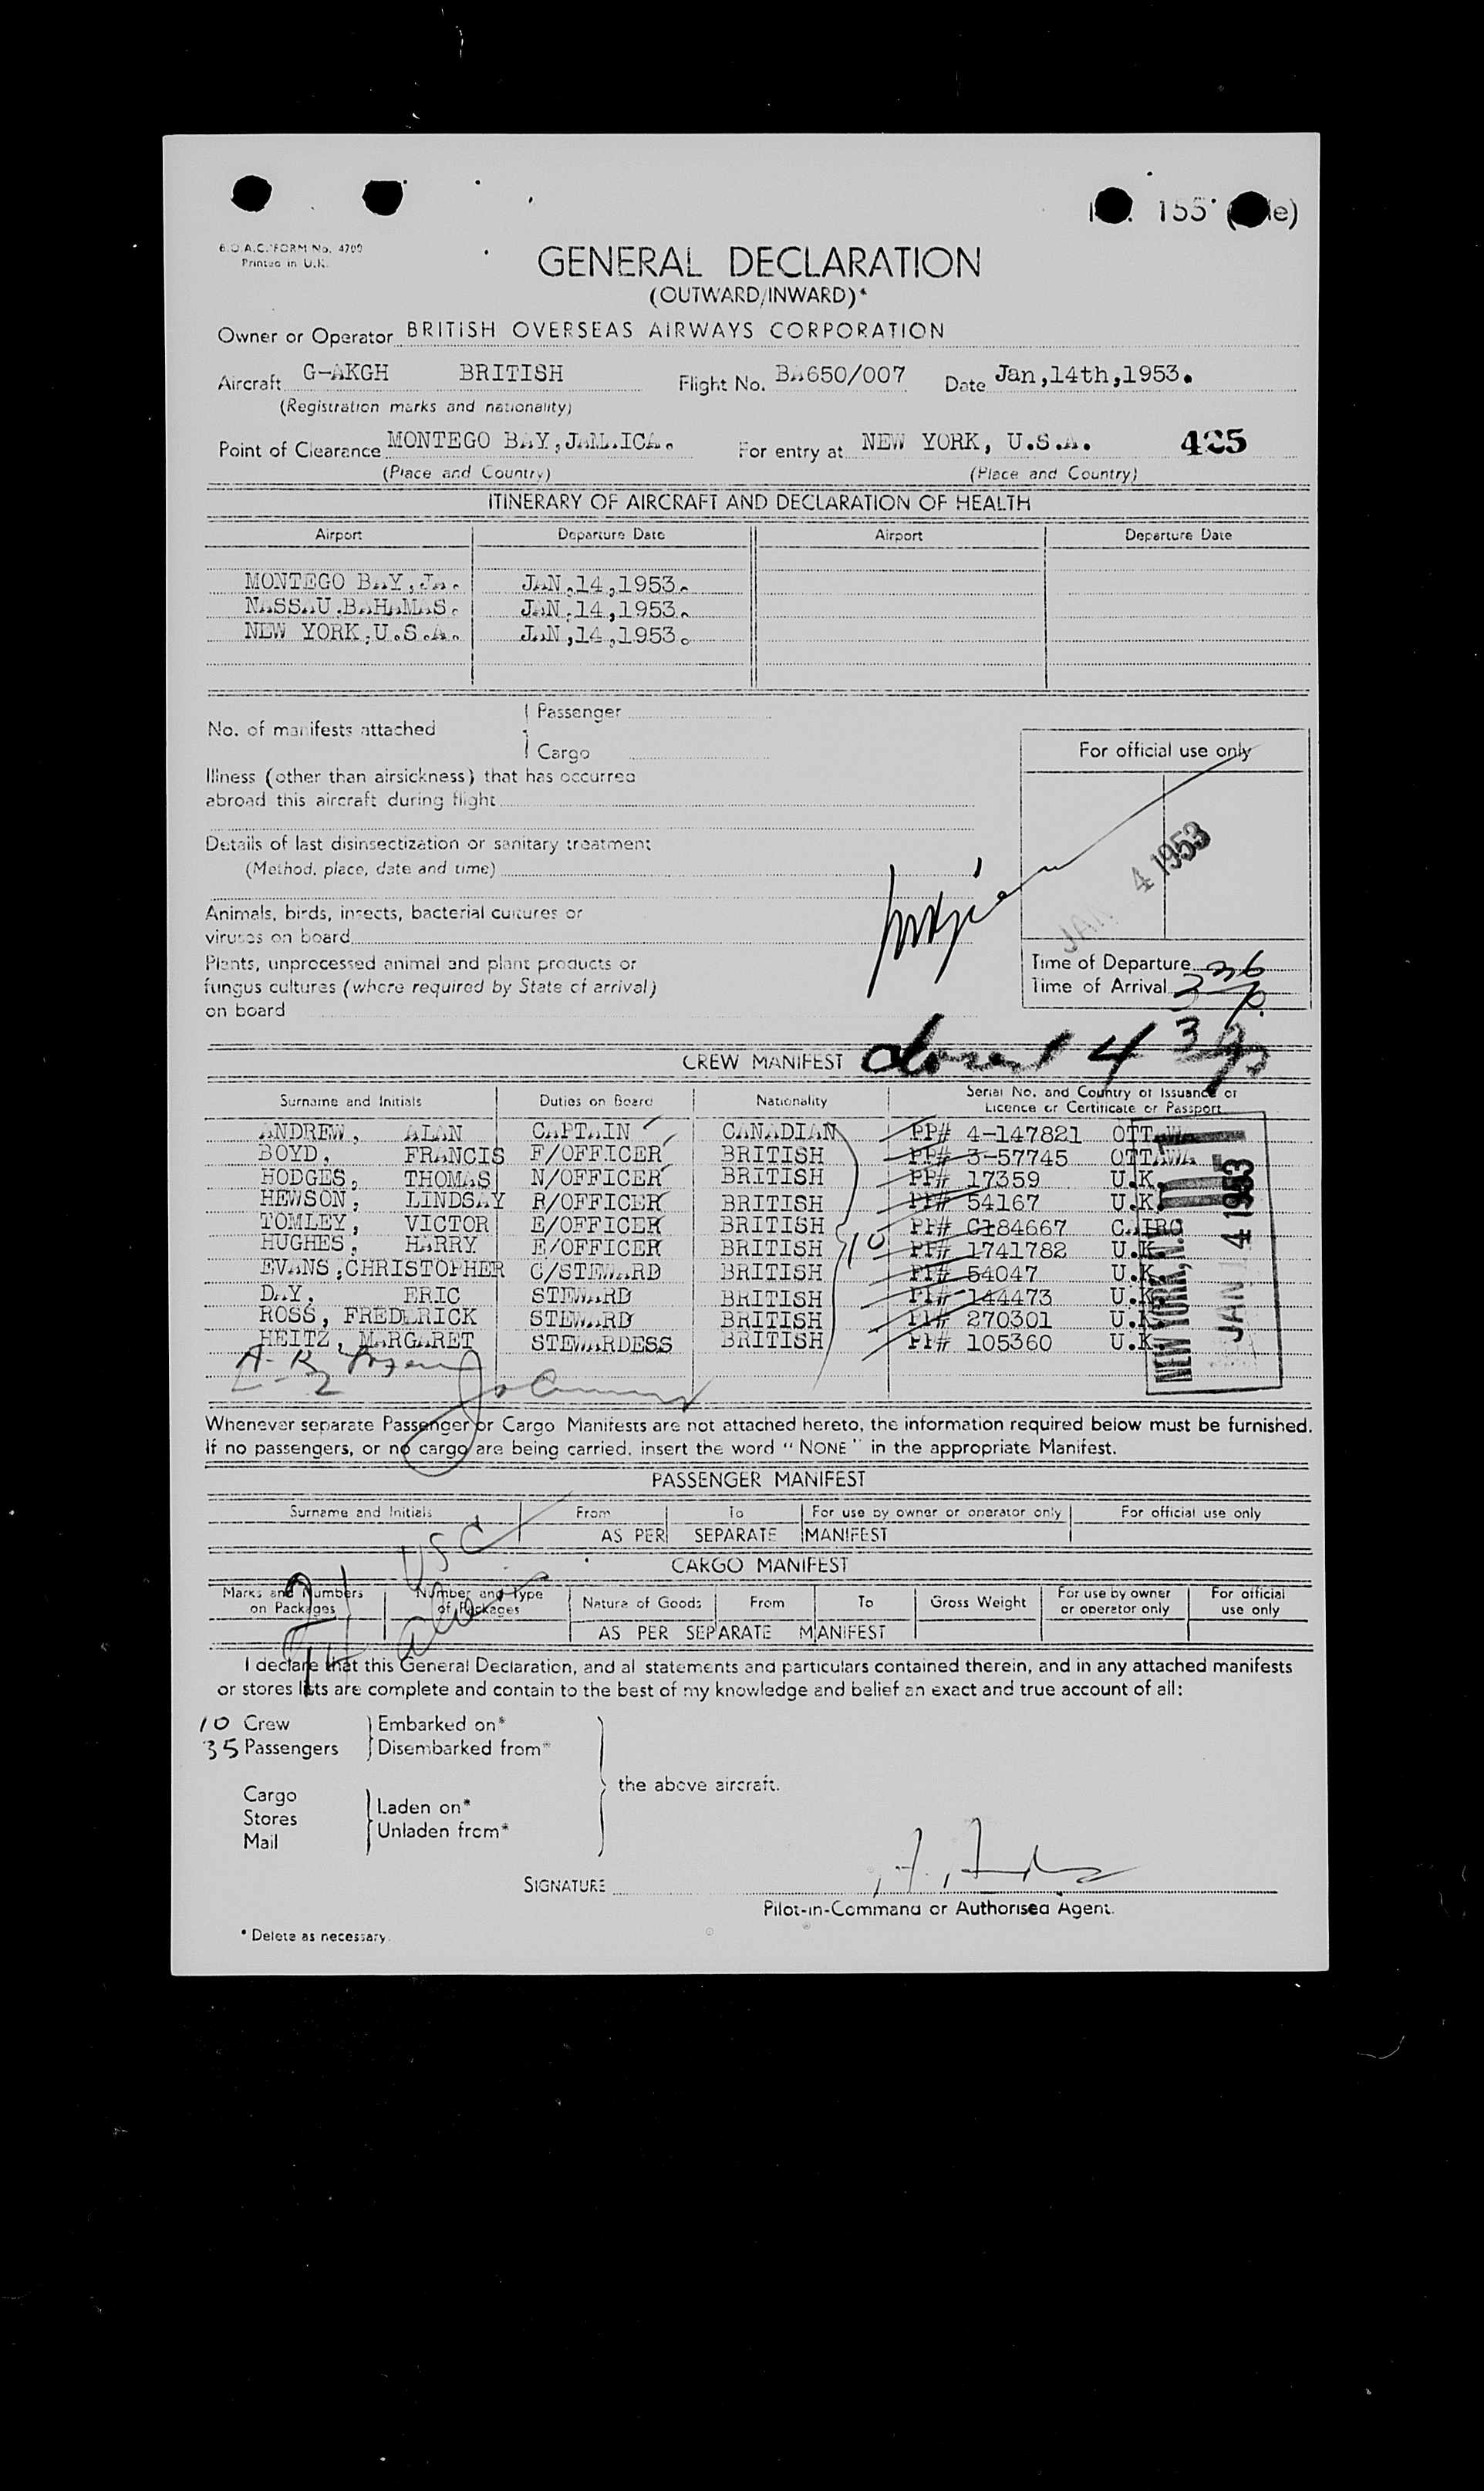 155
B.O.A.C. FORM No. 4700
Printed in U.K.
GENERAL DECLARATION
(OUTWARD/INWARD)*
Owner or Operator BRITISH OVERSEAS AIRWAYS CORPORATION
Aircraft G-AKGH BRITISH Flight No. BA650/007 Date Jan,14th,1953.
(Registration marks and nationality)
Point of Clearance MONTEGO BAY, JAMAICA. For entry at NEW YORK, U.S.A. 425
(Place and Country) (Place and Country)
ITINERARY OF AIRCRAFT AND DECLARATION OF HEALTH
Airport Departure Date Airport Departure Date
MONTEGO BAY,JA. JAN.14,1953.
NASSAU.BAHAMAS. JAN.14,1953.
NEW YORK,U.S.A. JAN,14,1953.
No. of manifests attached
Passenger
Cargo
For official use only
Illness (other than airsickness) that has occurred
abroad this aircraft during flight
Details of last disinsectization or sanitary treatment
(Method, place, date and time)
JAN 4 1953
Animals, birds, insects, bacterial cultures or
viruses on board
Plants, unprocessed animal and plant products or
fungus cultures (where required by State of arrival)
on board
Time of Departure
Time of Arrival
CREW MANIFEST
Surname and Initials Duties on Board Nationality Serial No. and Country of Issuance of
Licence or Certificate or Passport
ANDREW, ALAN CAPTAIN CANADIAN PP# 4-147821 OTTAWA
BOYD, FRANCIS F/OFFICER BRITISH PP# 3-57745 OTTAWA
HODGES, THOMAS N/OFFICER BRITISH PP# 17359 U.K.
HEWSON, LINDSAY R/OFFICER BRITISH PP# 54167 U.K.
TOMLEY, VICTOR E/OFFICER BRITISH PP# C184667 CAIRO
HUGHES, HARRY E/OFFICER BRITISH 10 PP# 1741782 U.K.
EVANS,CHRISTOPHER C/STEWARD BRITISH PP# 54047 U.K.
DAY, ERIC STEWARD BRITISH PP# 144473 U.K.
ROSS, FREDERICK STEWARD BRITISH PP# 270301 U.K.
HEITZ, MARGARET STEWARDESS BRITISH PP# 105360 U.K.
NEW YORK, N.Y.
JAN 14 1953
Whenever separate Passenger or Cargo Manifests are not attached hereto, the information required below must be furnished.
If no passengers, or no cargo are being carried, insert the word "NONE" in the appropriate Manifest.
PASSENGER MANIFEST
Surname and Initials From To For use by owner or operator only For official use only
AS PER SEPARATE MANIFEST
USC
CARGO MANIFEST
Marks and Numbers on Packages Number and Type of Packages Nature of Goods From To Gross Weight For use by owner or operator only For official use only
AS PER SEPARATE MANIFEST
I declare that this General Declaration, and al statements and particulars contained therein, and in any attached manifests
or stores lists are complete and contain to the best of my knowledge and belief an exact and true account of all:
10 Crew Embarked on*
35 Passengers Disembarked from*
the above aircraft.
Cargo
Stores
Mail
Laden on*
Unladen from*
SIGNATURE
Pilot-in-Command or Authorised Agent.
* Delete as necessary.